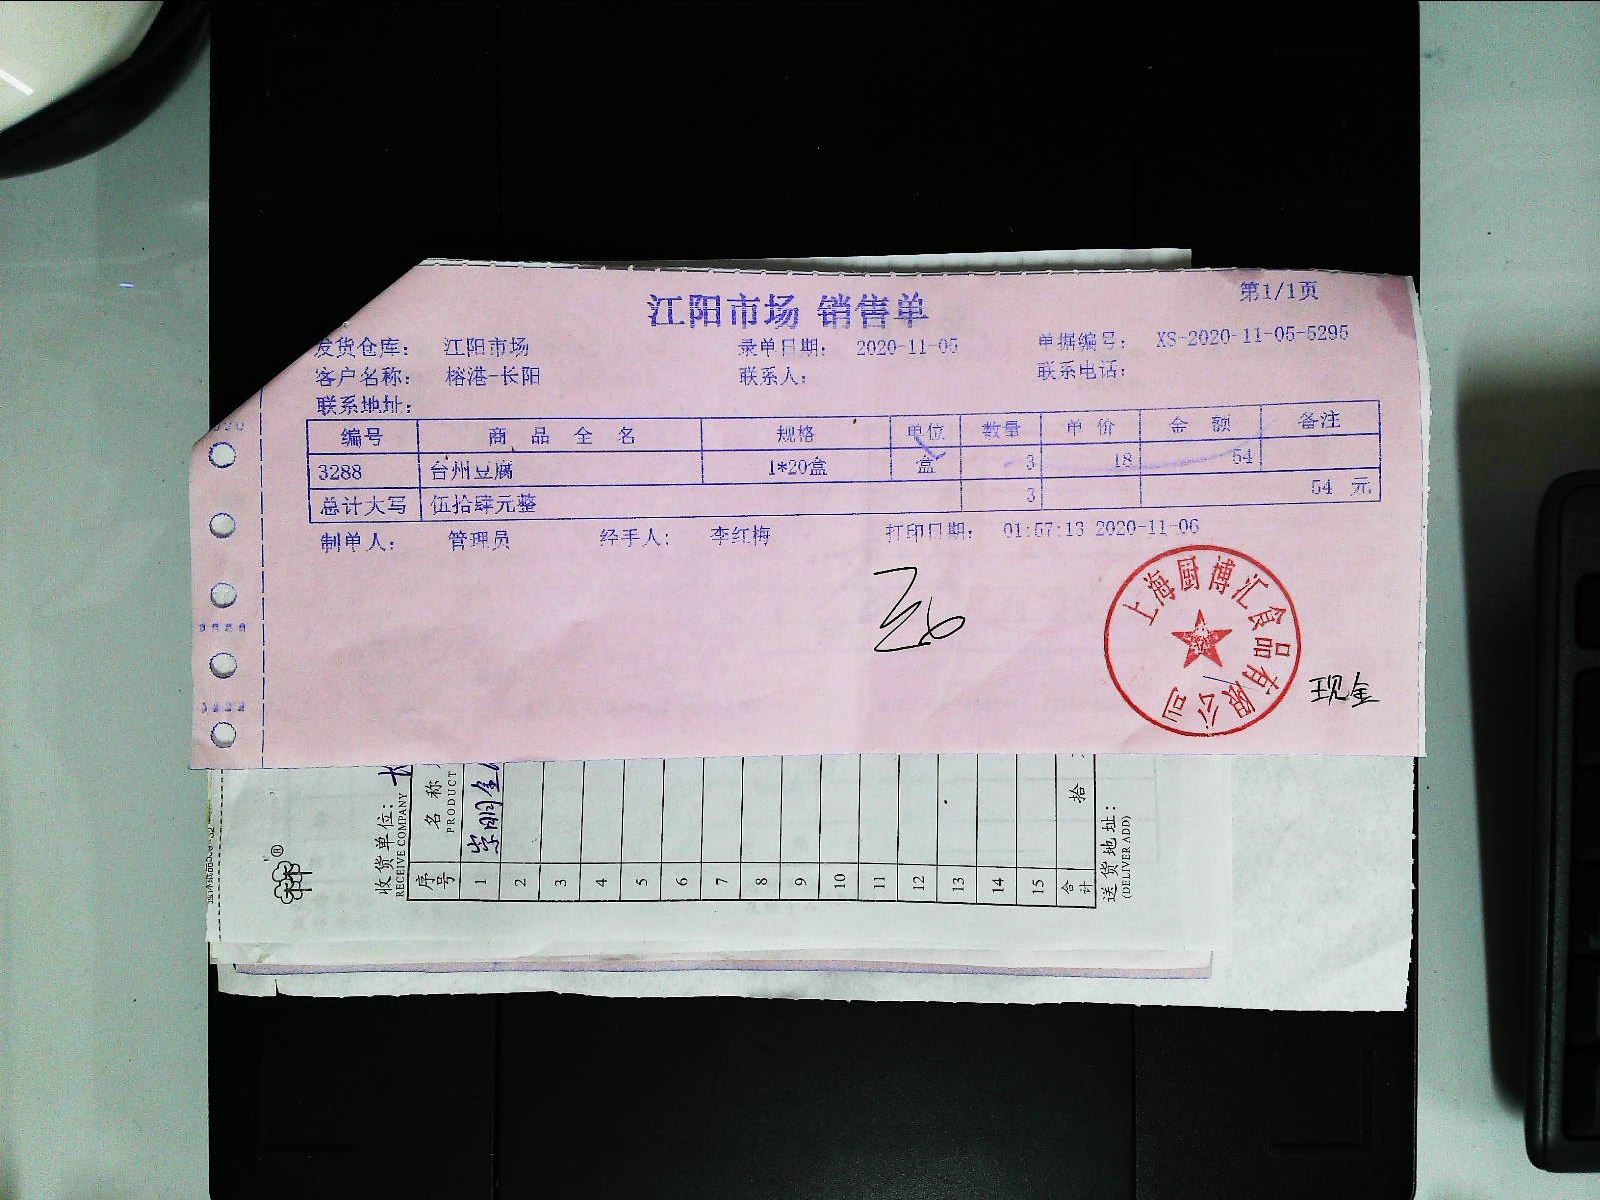 江阳市场 销售单
第1/1页
发货仓库： 江阳市场 录单日期： 2020-11-05 单据编号： XS-2020-11-05-5295
客户名称： 榕港-长阳 联系人： 联系电话：
联系地址：
编号 商品全名 规格 单位 数量 单价 金额 备注
3288 台州豆腐 1*20盒 盒 3 18 54
总计大写 伍拾肆元整 3 54 元
制单人： 管理员 经手人： 李红梅 打印日期： 01:57:13 2020-11-06
上海厨博汇食品有限公司
现金
收货单位：
RECEIVE COMPANY
序号 名称
PRODUCT
1
2
3
4
5
6
7
8
9
10
11
12
13
14
15
合计 拾
送货地址：
(DELIVER ADD)